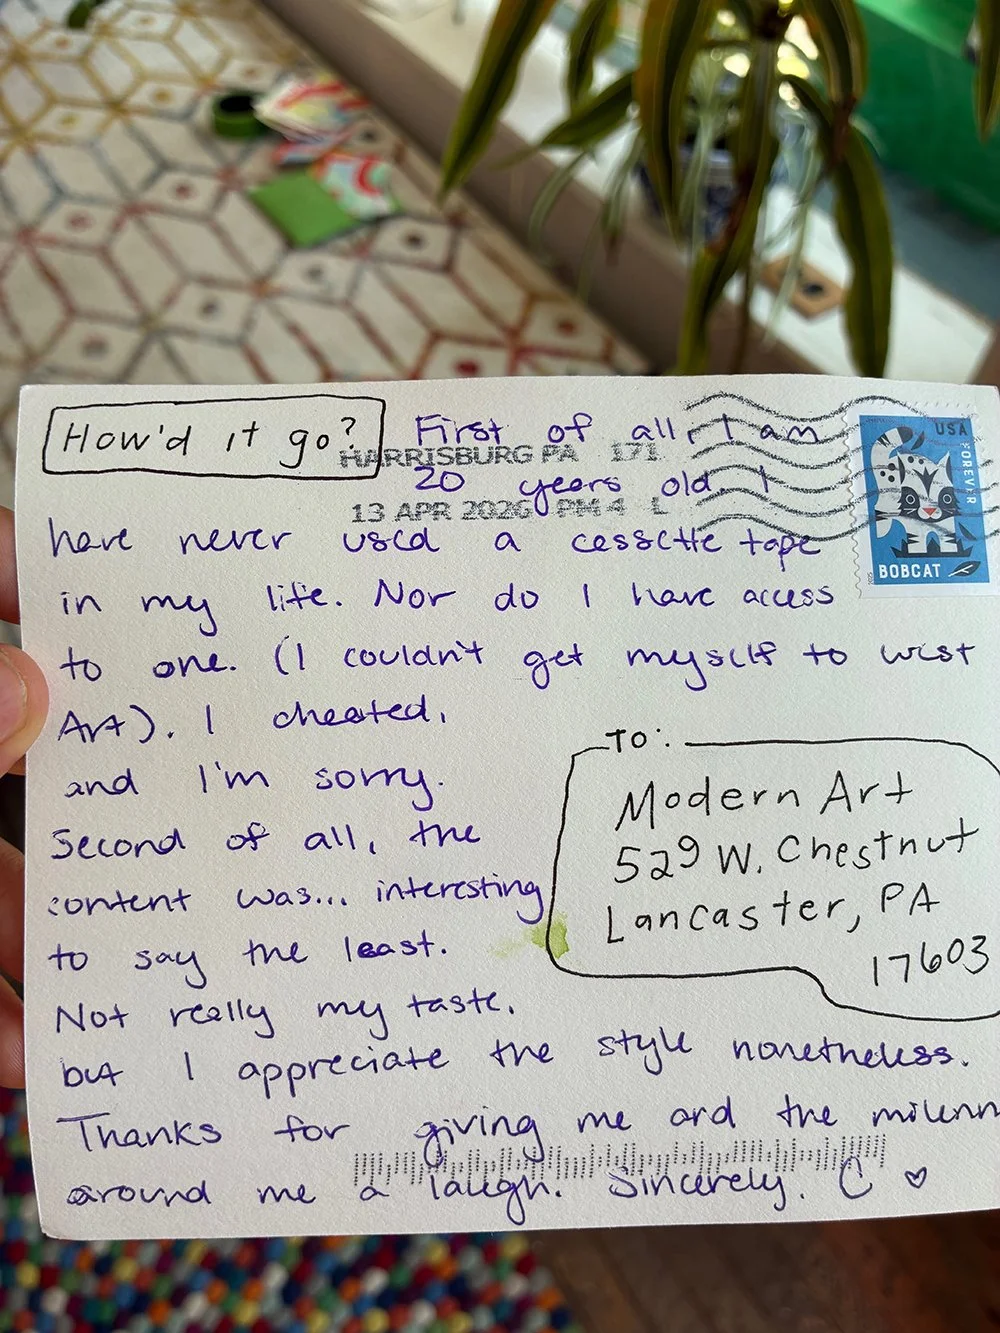 How'd it go?
First of all, I am
HARRISBURG PA 171
20 years old. I
13 APR 2026 PM 4 L
have never used a cassette tape
in my life. Nor do I have access
to one. (I couldn't get myself to west
Art). I cheated,
and I'm sorry.
Second of all, the
content was... interesting
to say the least.
Not really my taste.
but I appreciate the style nonetheless.
Thanks for giving me and the milenn
around me a laugh. Sincerely. C ♡
USA
FOREVER
BOBCAT
TO:
Modern Art
529 W. Chestnut
Lancaster, PA
17603